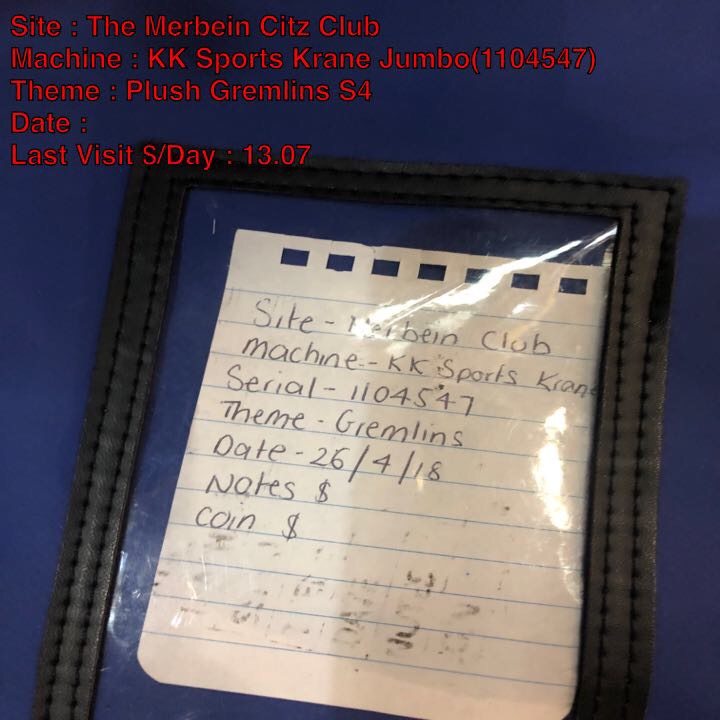 Site : The Merbein Citz Club
Machine : KK Sports Krane Jumbo(1104547)
Theme : Plush Gremlins S4
Date :
Last Visit S/Day : 13.07
Site - Merbein Club
Machine - KK Sports Krane
Serial - 1104547
Theme - Gremlins
Date - 26/4/18
Notes $
Coin $